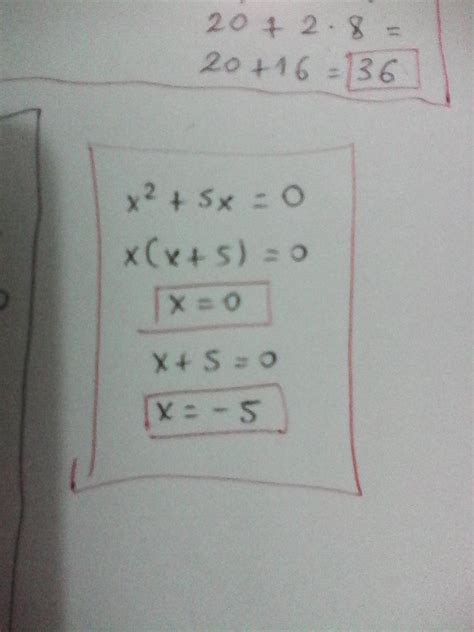 20 + 2 · 8 =
20 + 16 = 36
x² + 5x = 0
x(x + 5) = 0
x = 0
x + 5 = 0
x = - 5